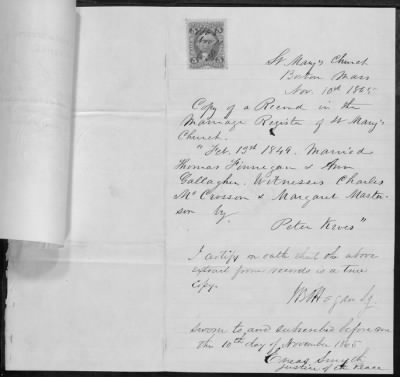 St Mary's Church
Boston Mass
Nov. 10th 1865
Copy of a Record in the
Marriage Register of St Mary's
Church.
"Feb. 13th 1849. Married
Thomas Finnegan & Ann
Gallagher. Witnesses Charles
McCrosson & Margaret Master-
son by
Peter Kroes"
I certify on oath that the above
extract from records is a true
copy.
Hogan
sworn to and subscribed before me
this 10th day of November 1865
Eneas Smyth
Justice of the Peace